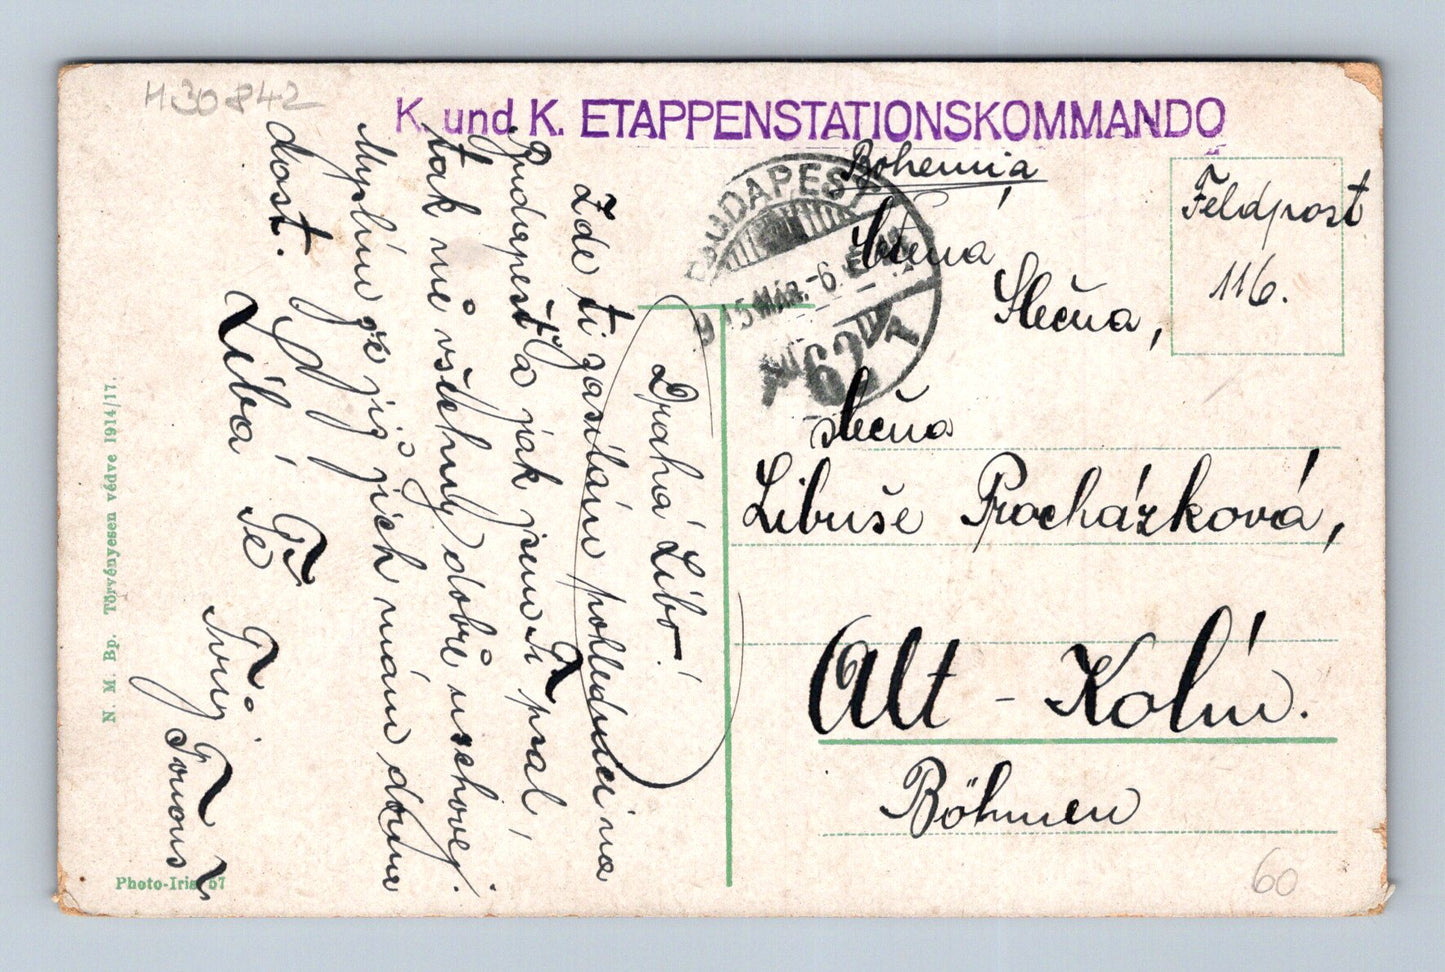 H30842
K. und K. ETAPPENSTATIONSKOMMANDO
BUDAPEST
915 MÁR. -6.
62
Bohemia
Feldpost
116.
Ctěná
Slečna,
slečna
Libuše Procházková,
Alt - Kolín.
Böhmen
Drahá Libo!
Zde ti zasílám pohlednici na
Budapešť a jak jsem ti psal,
tak mě všechny dobře uschovej.
Myslím že již jich mám doma
dost.
Líbá Tě
Tvůj
N. M. Bp. Törvényesen védve 1914/17.
Photo-Iris 57
60